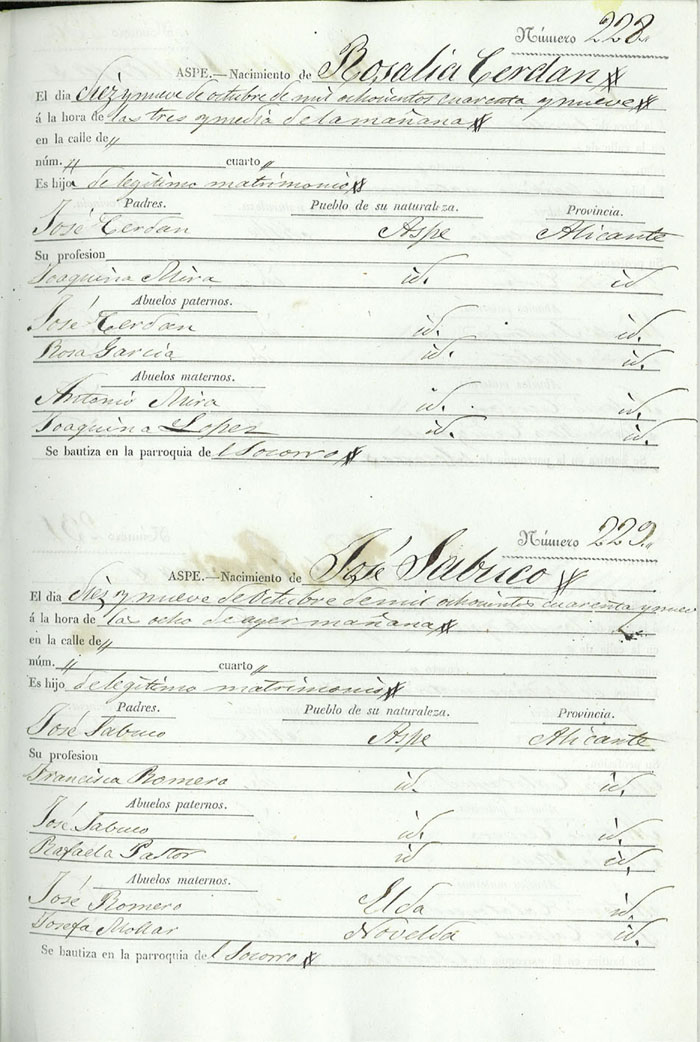 Número 228.
ASPE.—Nacimiento de Rosalia Cerdan
El dia diez y nueve de octubre de mil ochocientos cuarenta y nueve
á la hora de las tres y media de la mañana
en la calle de "
núm. " cuarto "
Es hija de legitimo matrimonio
Padres. Pueblo de su naturaleza. Provincia.
José Cerdan Aspe Alicante
Su profesion
Joaquina Mira id. id
Abuelos paternos.
José Cerdan id. id.
Rosa Garcia id. id.
Abuelos maternos.
Antonio Mira id. id.
Joaquina Lopez id. id.
Se bautiza en la parroquia del Socorro
Número 229.
ASPE.—Nacimiento de José Sabuco
El dia diez y nueve de Octubre de mil ochocientos cuarenta y nueve
á la hora de las ocho de ayer mañana
en la calle de "
núm. " cuarto "
Es hijo de legitimo matrimonio
Padres. Pueblo de su naturaleza. Provincia.
José Sabuco Aspe Alicante
Su profesion
Francisca Romero id. id.
Abuelos paternos.
José Sabuco id. id.
Rafaela Pastor id id.
Abuelos maternos.
José Romero Elda id.
Josefa Mollar Novelda id.
Se bautiza en la parroquia del Socorro